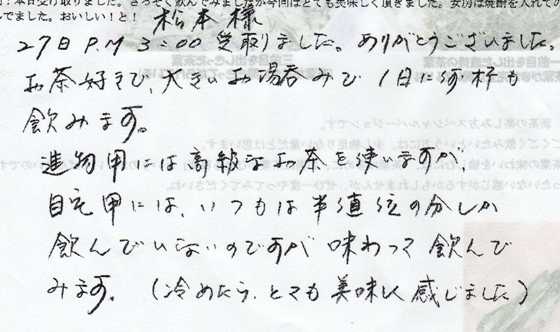 :本日受け取りました。さっそく飲んでみましたが今回はとても美味しく頂きました。女房は焼酎を入れての
でました。おいしい!と!
松本様
27日 P.M 3:00 受取りました。ありがとうございました。
お茶好きで、大きいお湯呑みで 1日に何杯も
飲みます。
進物用には高級なお茶を使いますが、
自宅用には、いつもは半値位の分しか
飲んでいないのですが 味わって飲んで
みます。(冷めたら、とても美味しく感じました)